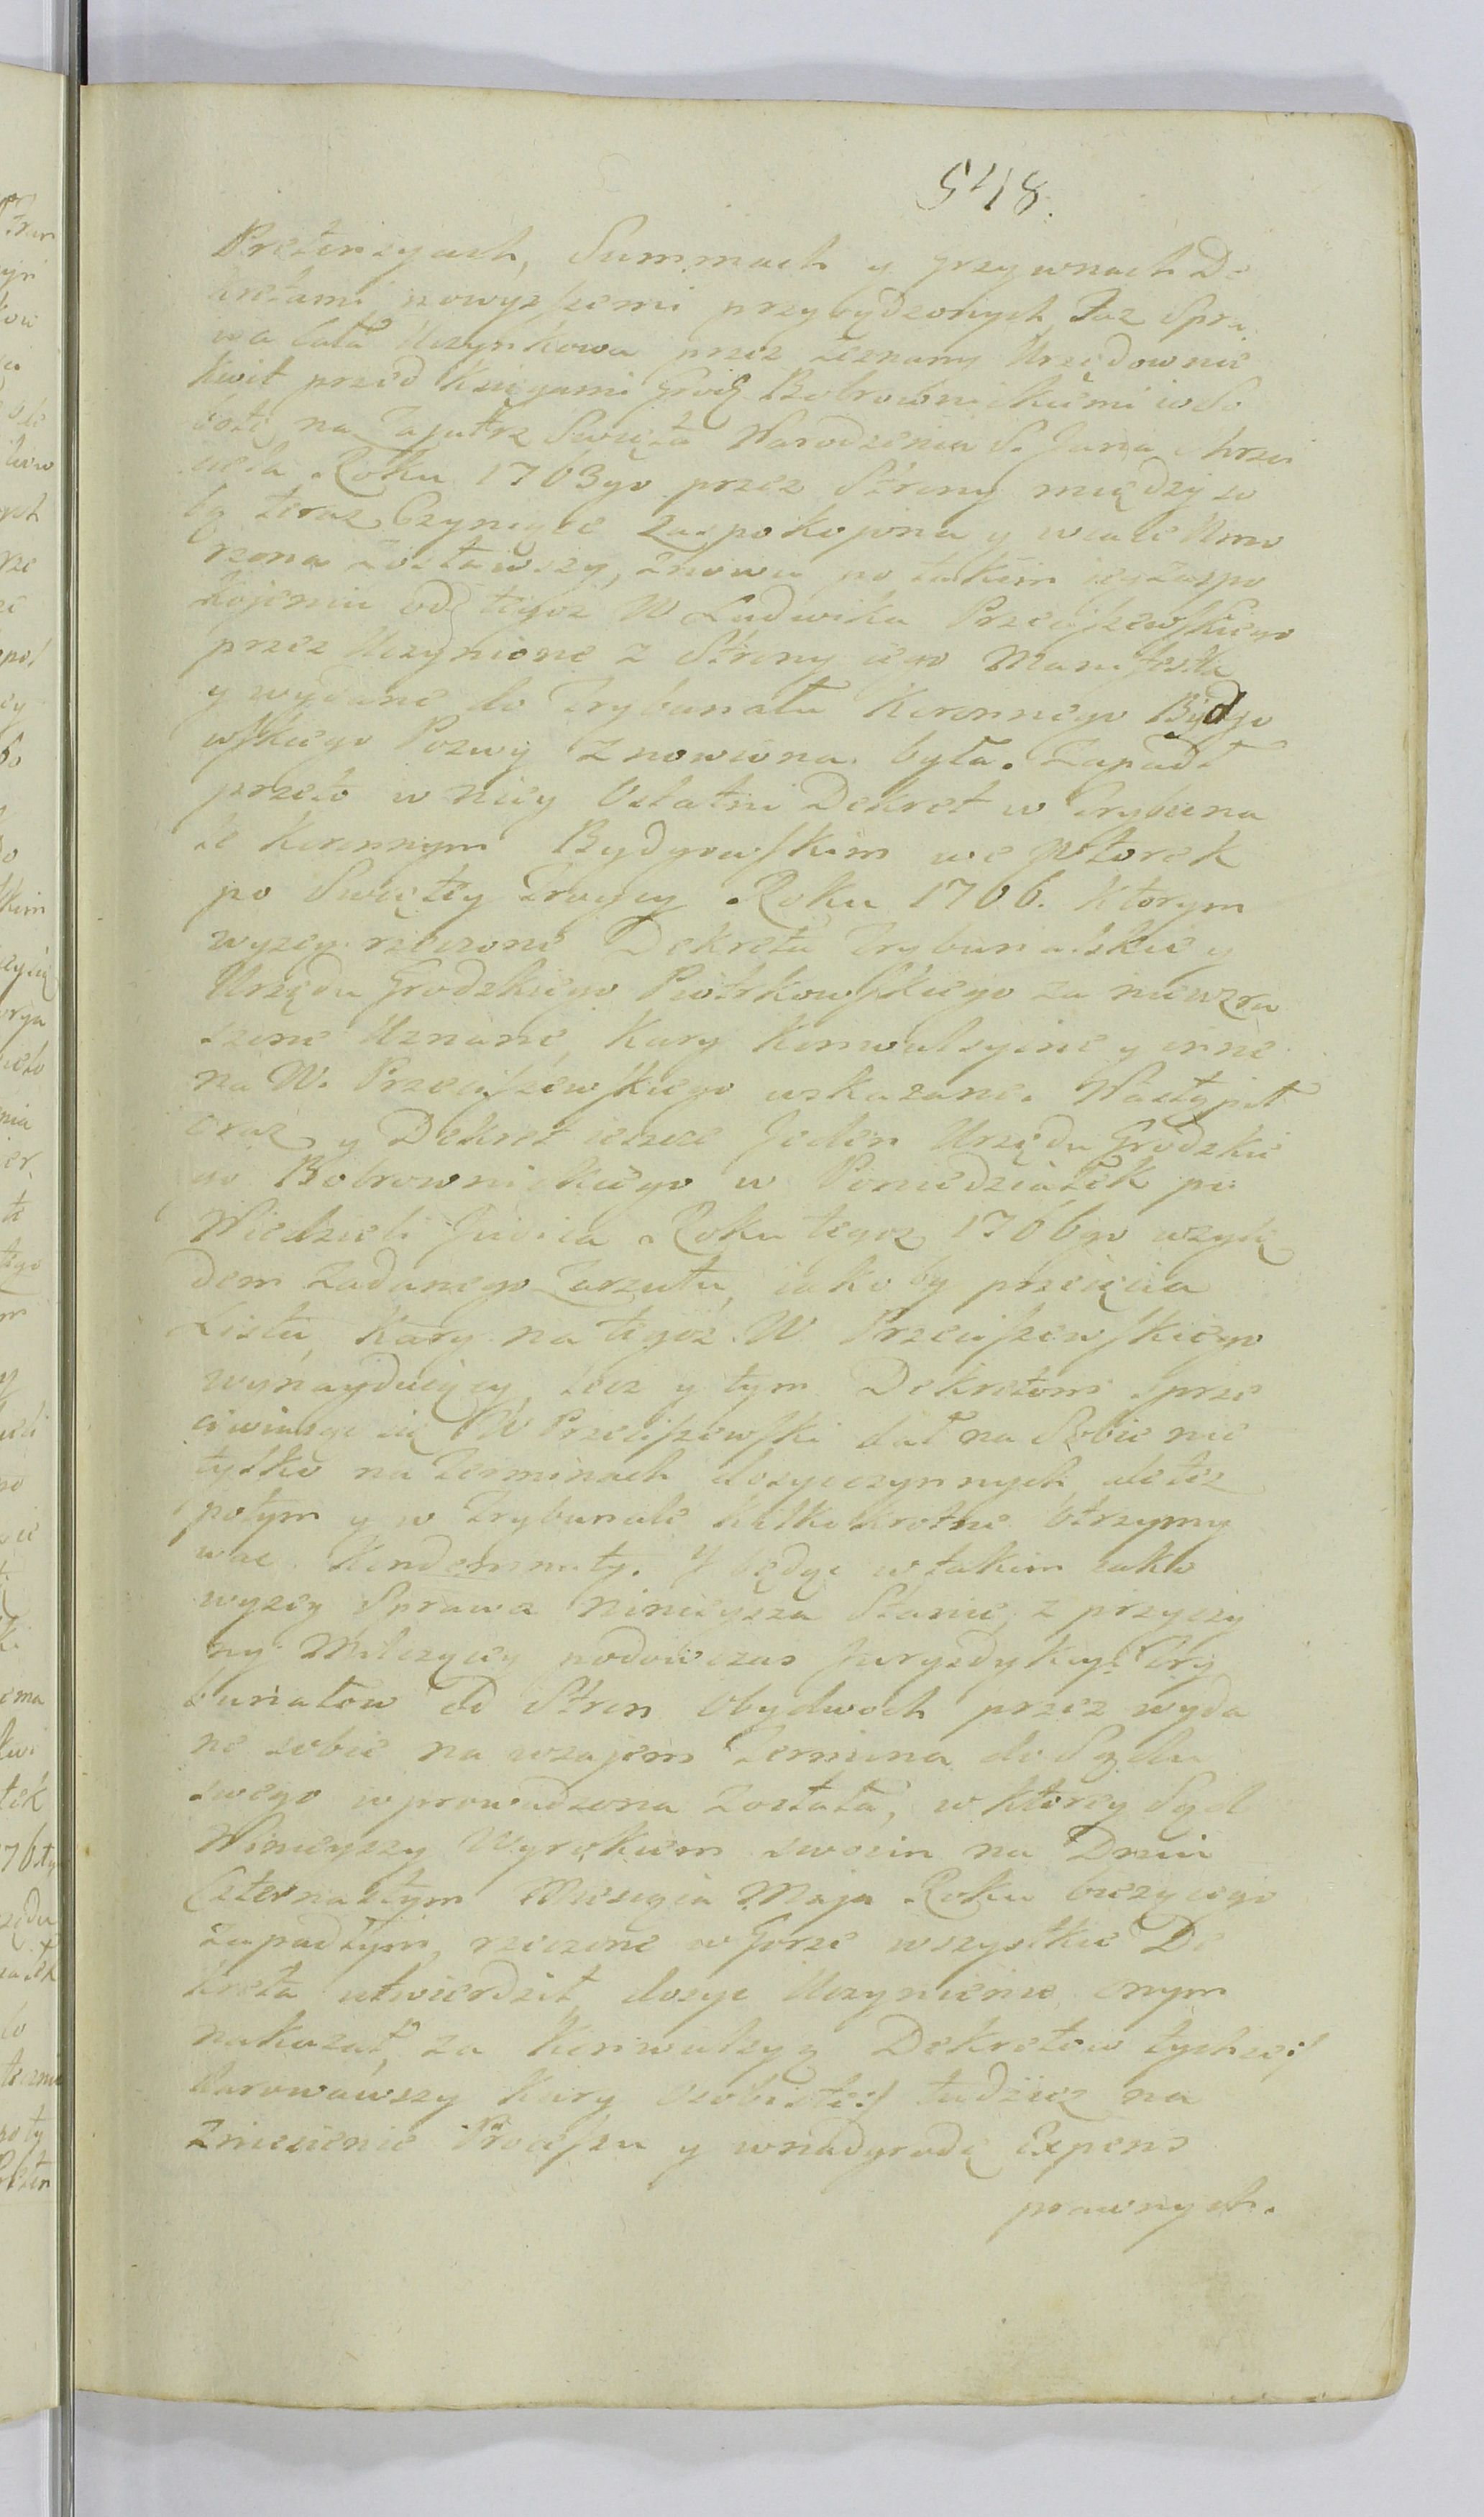 548.
Pretensyach, Summach y grzywnach De
kretami powyższemi przysądzonych, Taz Spra
wa Cała Uczynkowa przez zeznany Urzędownie
kwit przed Xsięgami Grodz. Bobrownickiemi w So
botę na Zajutrz Swięta Narodzenia S. Jana Chrzci
ciela Roku 1763go przez Strony między so
bą teraz Czyniące zaspokojona y wcale Umo
rzona zostawszy, znowu po takim iey zaspo
kojeniu od tegoż W Ludwika Przeciszewskiego
przez Uczynione z Strony iego Manifesta
y wydane do Trybunału Koronnego Bydgo
wskiego Pozwy Znowiona była. Zapadł
przeto w niey Ostatni Dekret w Trybuna
le Koronnym Bydgowskim we Wtorek
po Swiętey Troycy Roku 1766. Ktorym
wyzey rzeczone Dekreta Trybunalskie y
Urzędu Grodzkiego Piotrkowskiego za niewzru
szone Uznane, Kary Konwulsyine y inne
na W. Przeciszewskiego wskazane. Nastąpił
oraz y Dekret ieszcze Jeden Urzędu Grodzkie
go Bobrownickiego w Poniedziałek po
Niedzieli Judica Roku tegoz 1766go wzglę
dem Zadanego Zarzutu, iako by przeięcia
Listu, Kary na tegoż W Przeciszewskiego
wynayduiący, lecz y tym Dekretom sprze
ciwiaiąc się W Przeciszewski dał na Sobie nie
tylko na Terminach dosycczynnych ale tez
potym y w Trybunale Kilkokrotne Otrzymy
wac Kondemnaty. Y będąc w takim iako
wyzey Sprawa ninieysza Stanie, z przyczy
ny Milczącey podowczas Juryzdykcyi Try
bunałow od Stron Obydwoch przez wyda
ne sobie na wzajem Termina do Sądu
swego wprowadzona Została, w ktorey Sąd
Ninieyszy Wyrokiem swoim na Dniu
Czternastym Miesiąca Maja Roku biezącego
Zapadłym, rzeczone w Gorze wszystkie De
kreta utwierdził, dosyc Uczynienie onym
nakazał, za Konwulsyą Dekretow tychze:/
darowawszy Kary osobiste:/ tudziez na
Zniesienie Processu y w nadgrodę Expens
prawnych.